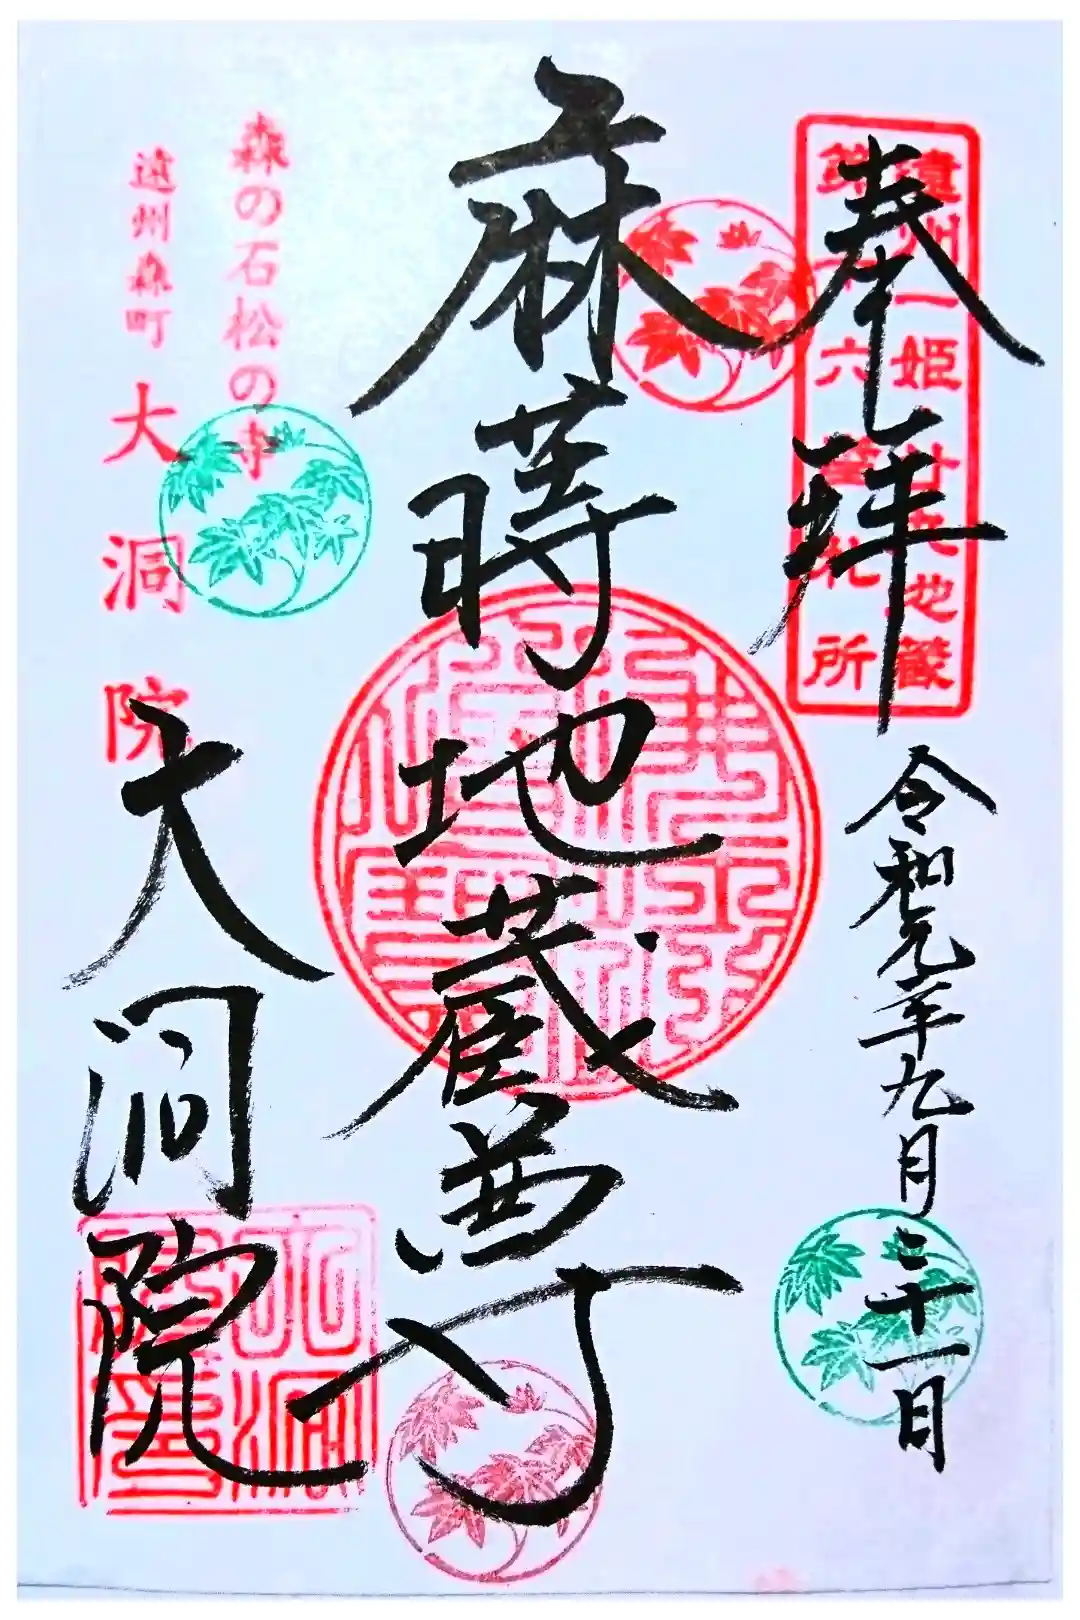 奉拝
遠州一姫 地蔵
六番札所
令和元年九月二十一日
麻蒔地蔵尊
森の石松の寺
遠州森町 大洞院
大洞院
大洞院印